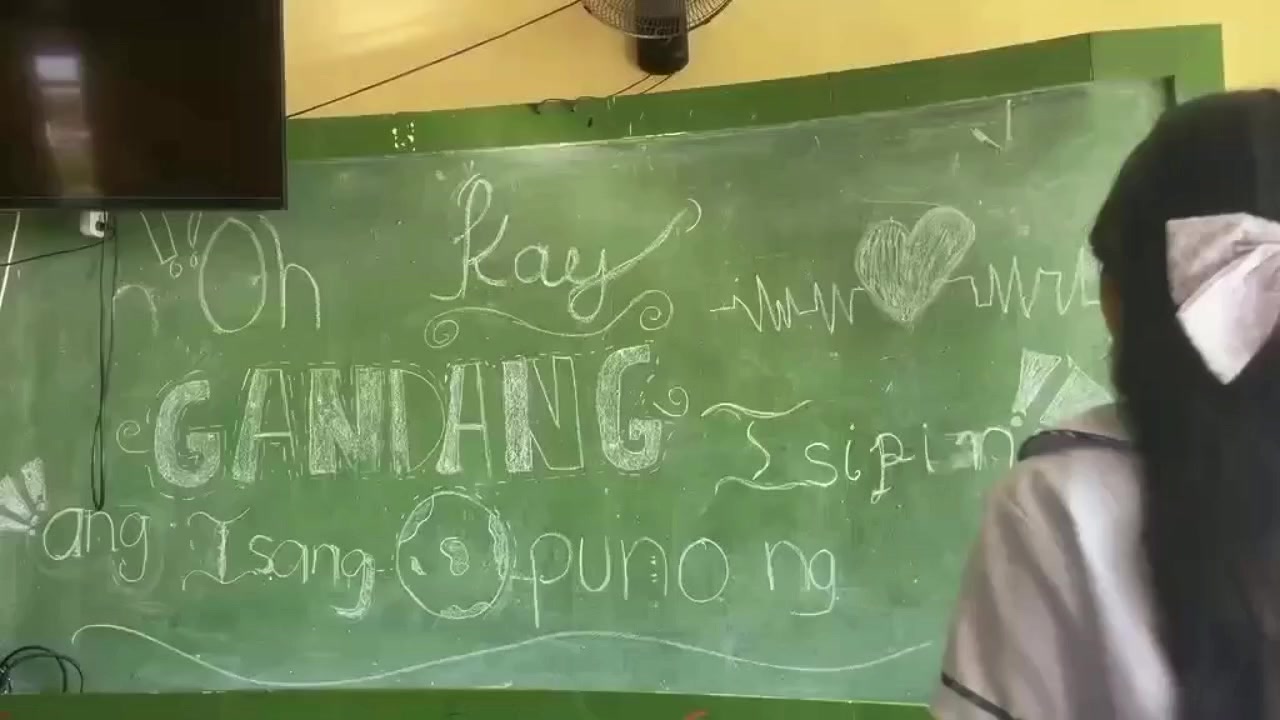 "Oh Kay
GANDANG Isipin
ang Isang puno ng